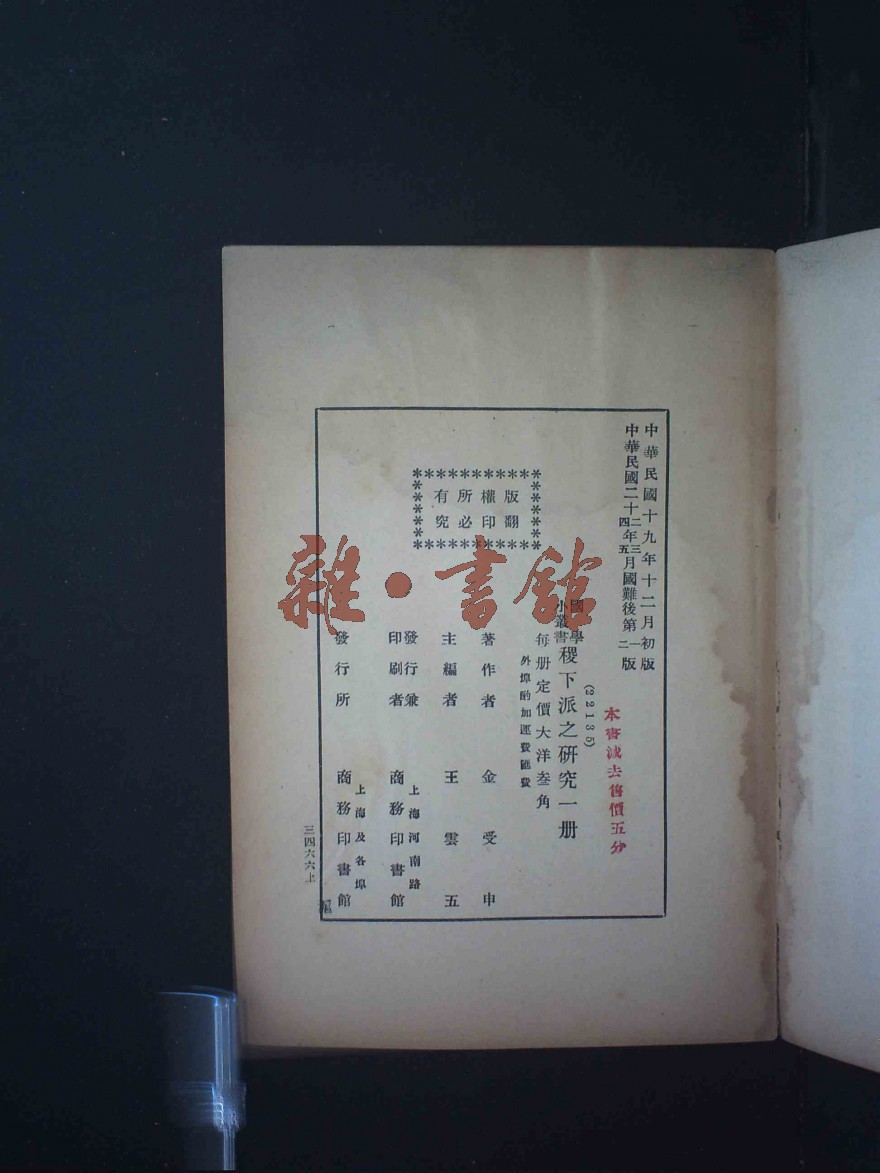 中華民國十九年十二月初版
中華民國二十二年三月國難後第一版
四 五 二
本書減去售價五分
(22135)
國學小叢書 稷下派之研究一册
每册定價大洋叁角
外埠酌加運費匯費
版權所有
翻印必究
著作者 金受申
主編者 王雲五
發行兼印刷者 上海河南路 商務印書館
發行所 上海及各埠 商務印書館
三四六六上
雜·書館